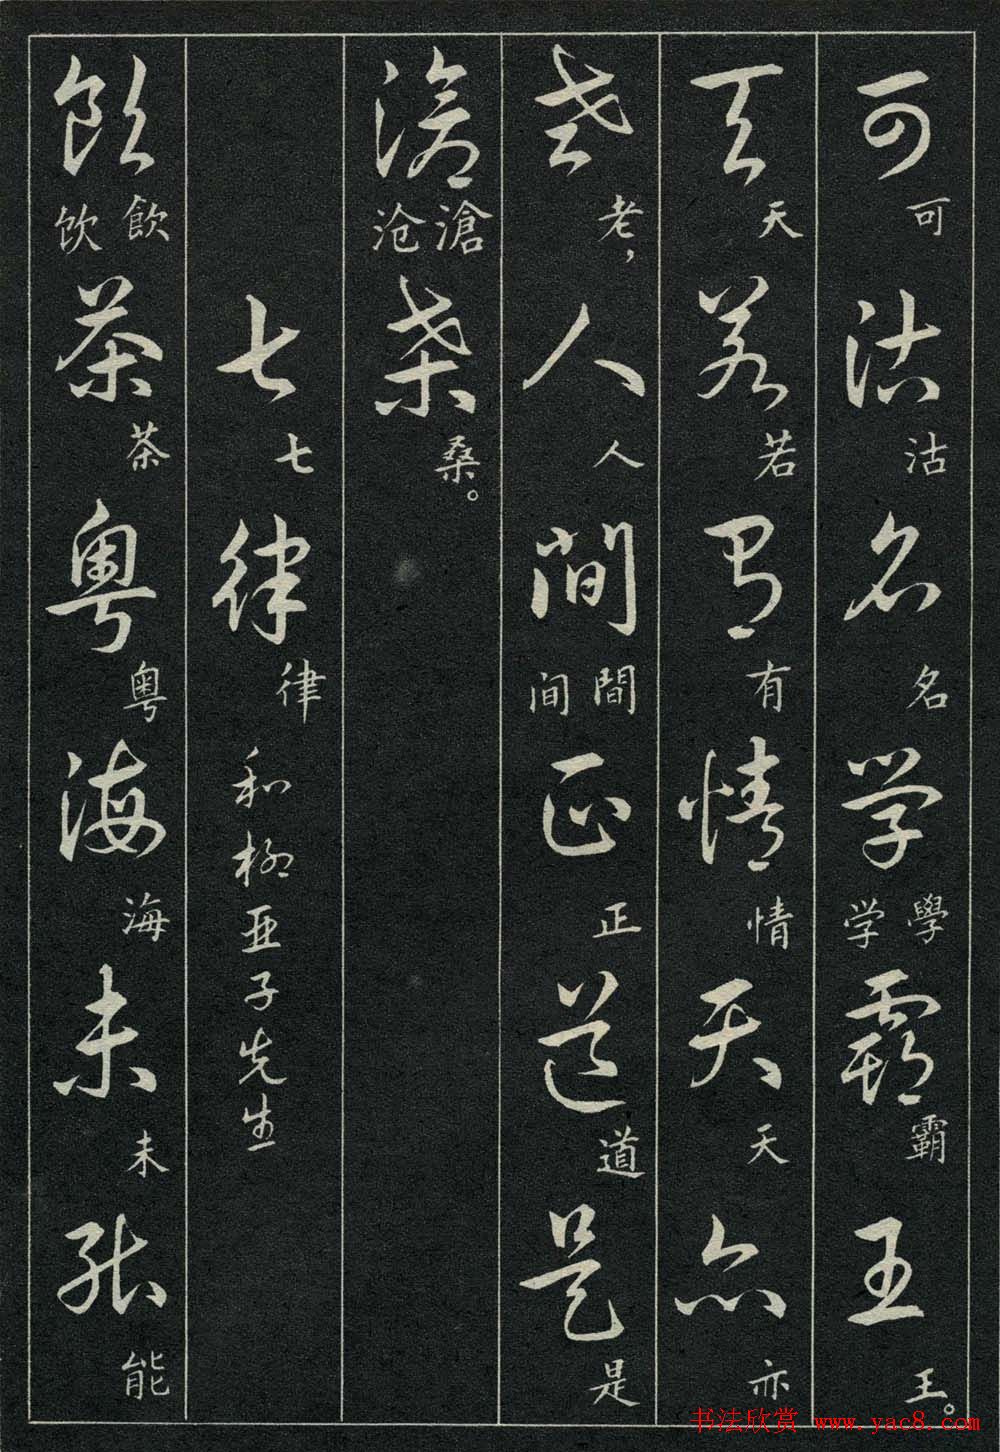 可沽名学霸王
可沽名學学霸王。
天若有情天亦
天若有情天亦
老人間正道是
老，人間间正道是
滄桑
滄沧桑。
七律 和柳亚子先生
七律
飲茶粤海未能
飲饮茶粤海未能
书法欣赏 www.yac8.com